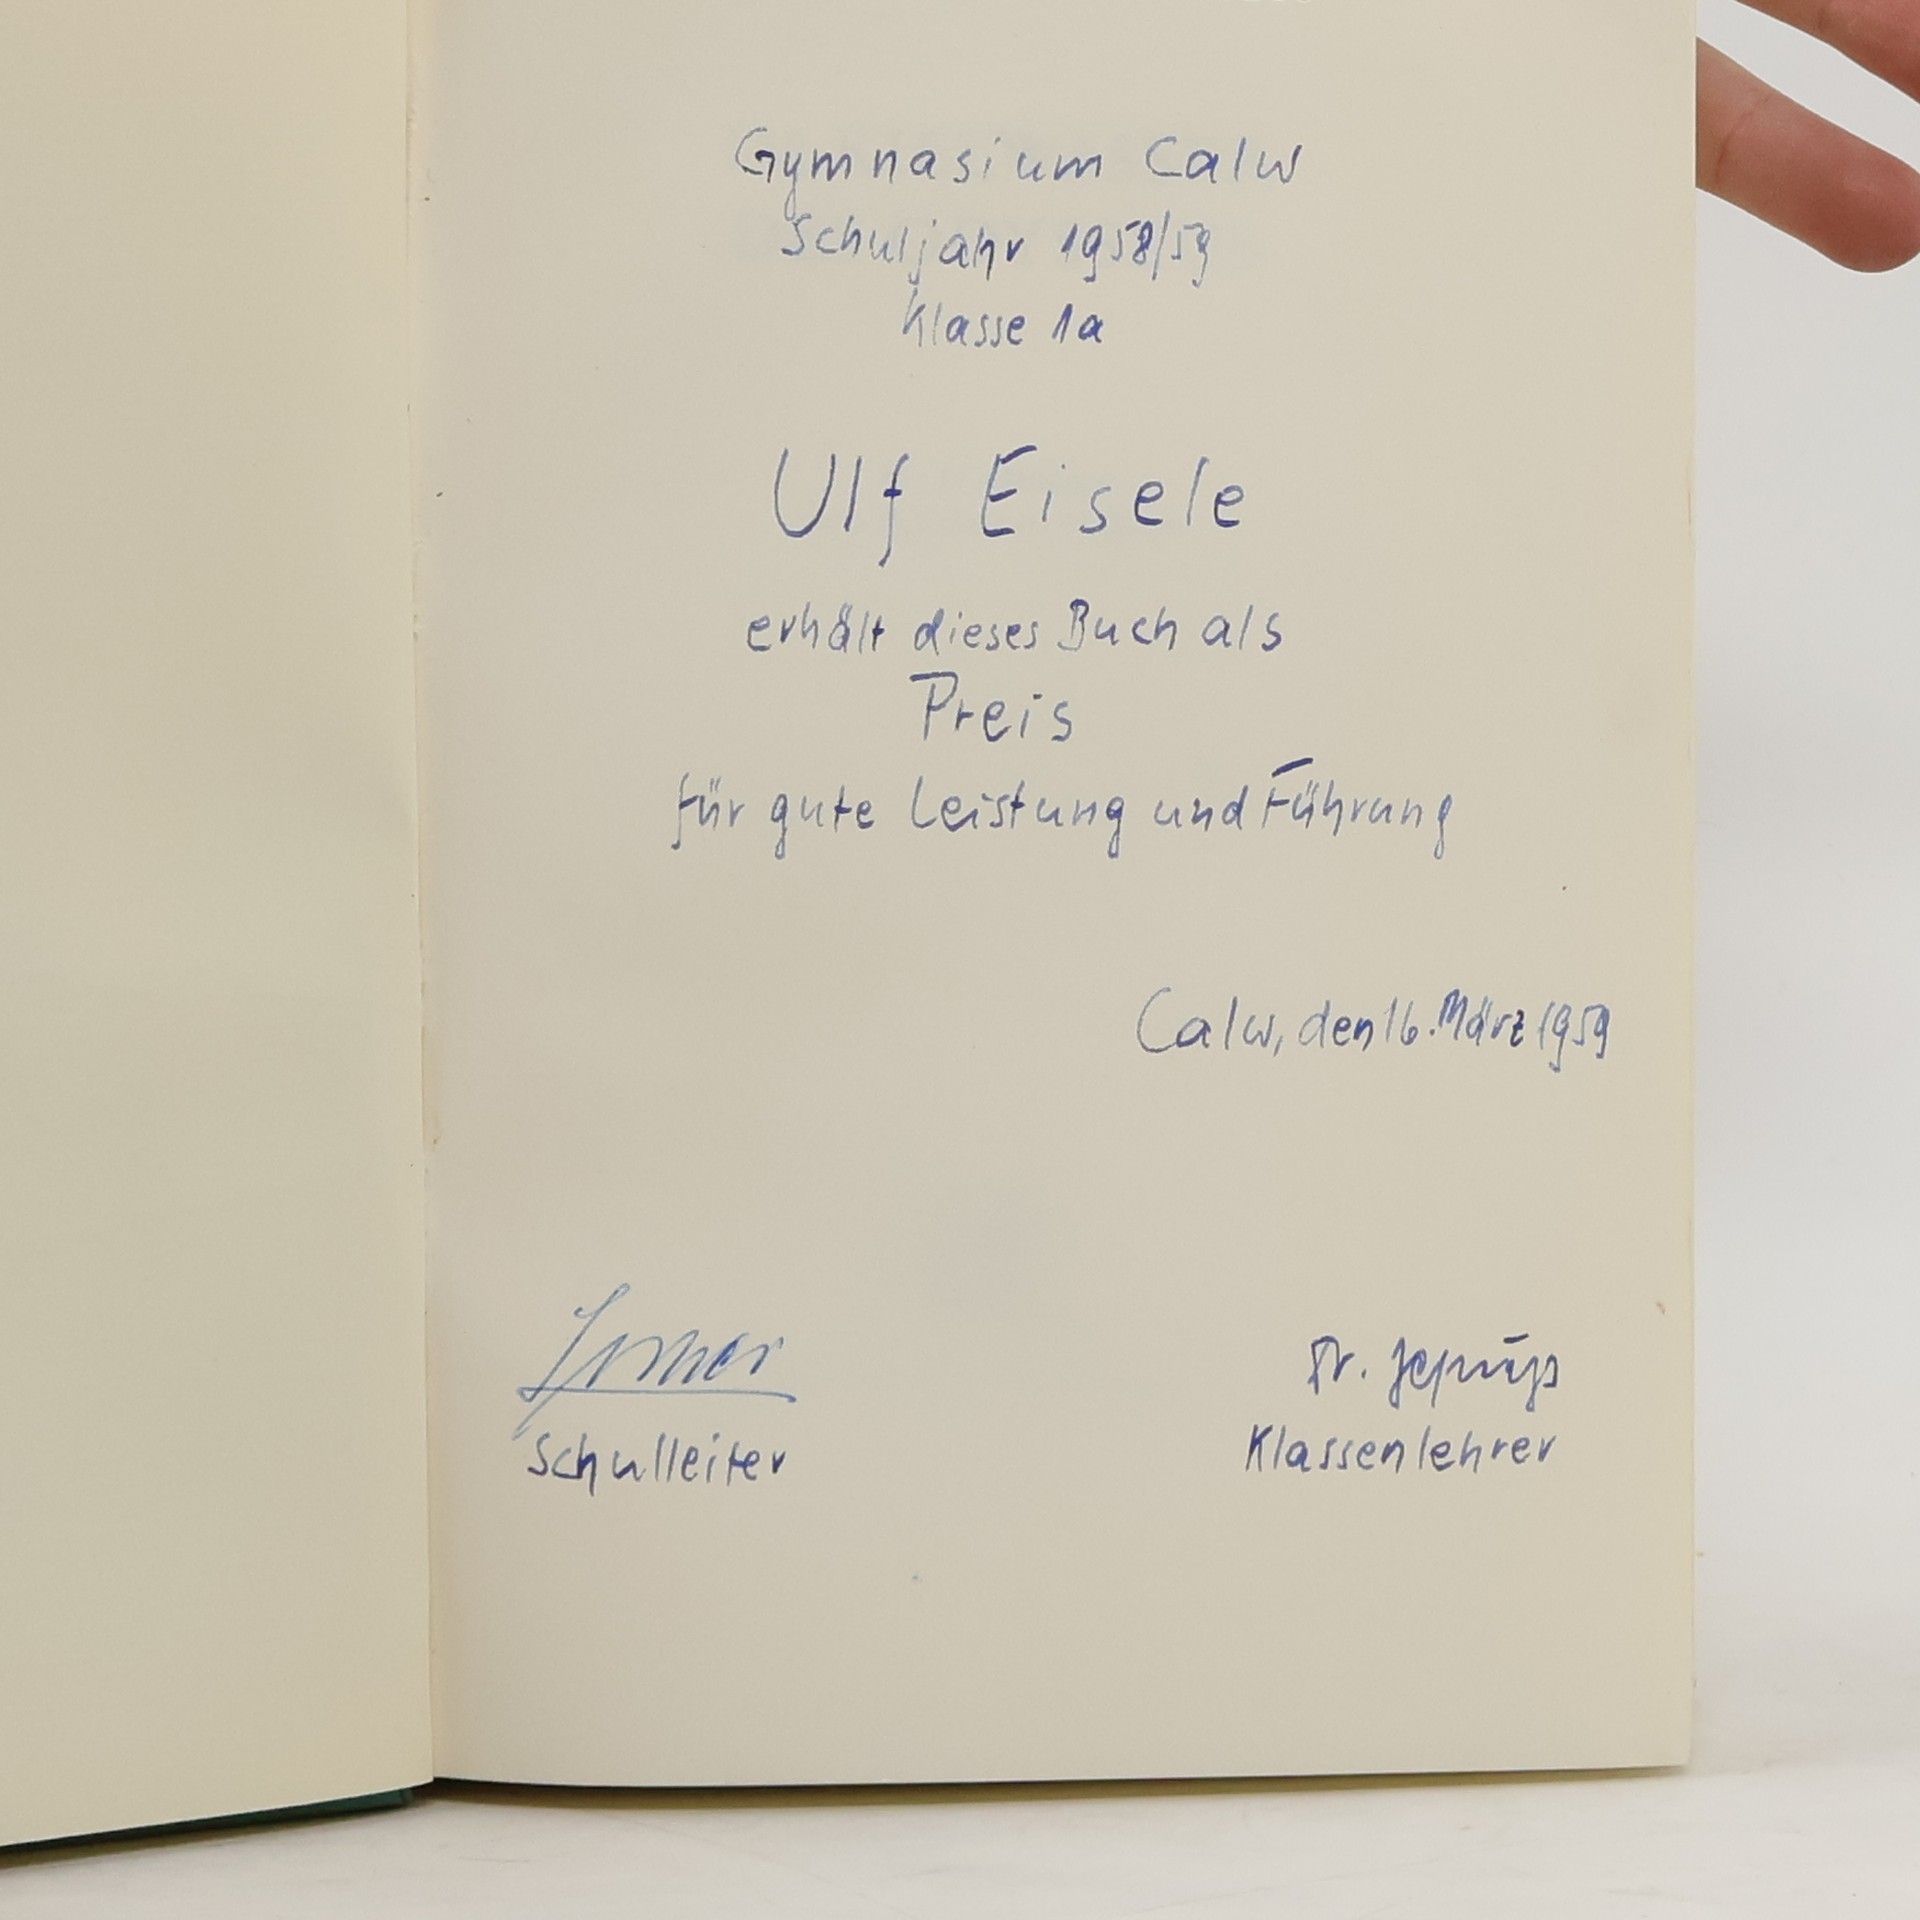 Gymnasium Calw
Schuljahr 1958/59
Klasse 1a
Ulf Eisele
erhält dieses Buch als
Preis
für gute Leistung und Führung
Calw, den 16. März 1959
Dr.
Schulleiter
Klassenlehrer